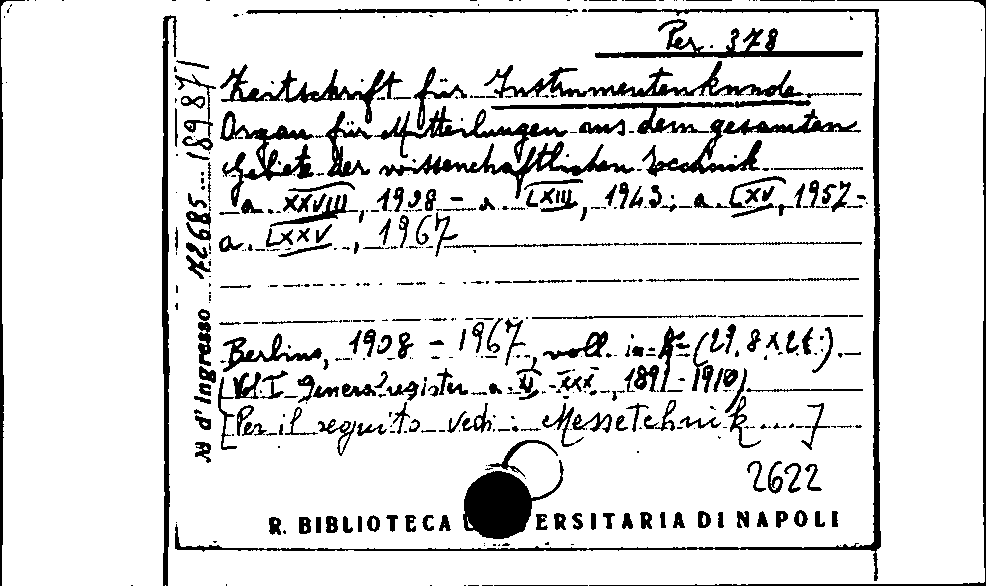 Per. 378
Zeitschrift für Instrumentenkunde.
Organ für Mitteilungen aus dem gesamten
Gebiete der wissenschaftlichen Technik
a. XXVIII, 1908 - a. LXIII, 1943; a. LXV, 1957 -
a. LXXV, 1967
Berlino, 1908 - 1967, voll. in-4° (29,8 x 21).
(Vol. I Generalregister a. XI - XXX, 1891 - 1910).
[Per il seguito vedi: Messetechnik ...]
2622
R. BIBLIOTECA UNIVERSITARIA DI NAPOLI
N d'Ingresso 72685 189871